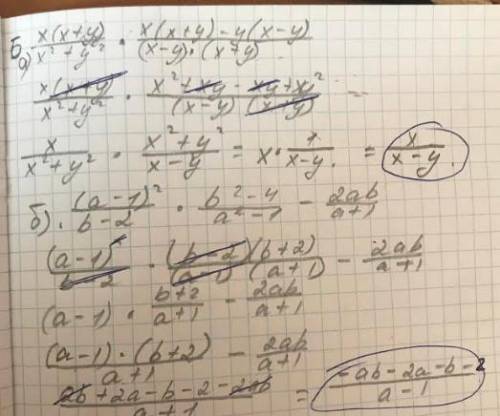 Б.
а) x(x+y)/(x²+y²) · (x(x+y)-y(x-y))/((x-y)·(x+y))
x(x+y)/(x²+y²) · (x²+xy-xy+y²)/((x-y)(x+y)) =
x/(x²+y²) · (x²+y²)/(x-y) = x · 1/(x-y). = x/(x-y).
б). (a-1)²/(b-2) · (b²-4)/(a²-1) - 2ab/(a+1)
(a-1)²/(b-2) · (b-2)(b+2)/((a-1)(a+1)) - 2ab/(a+1)
(a-1) · (b+2)/(a+1) - 2ab/(a+1)
(a-1)·(b+2)/(a+1) - 2ab/(a+1)
+2a-b-2-2ab/(a+1) = (-ab-2a-b-2)/(a-1)